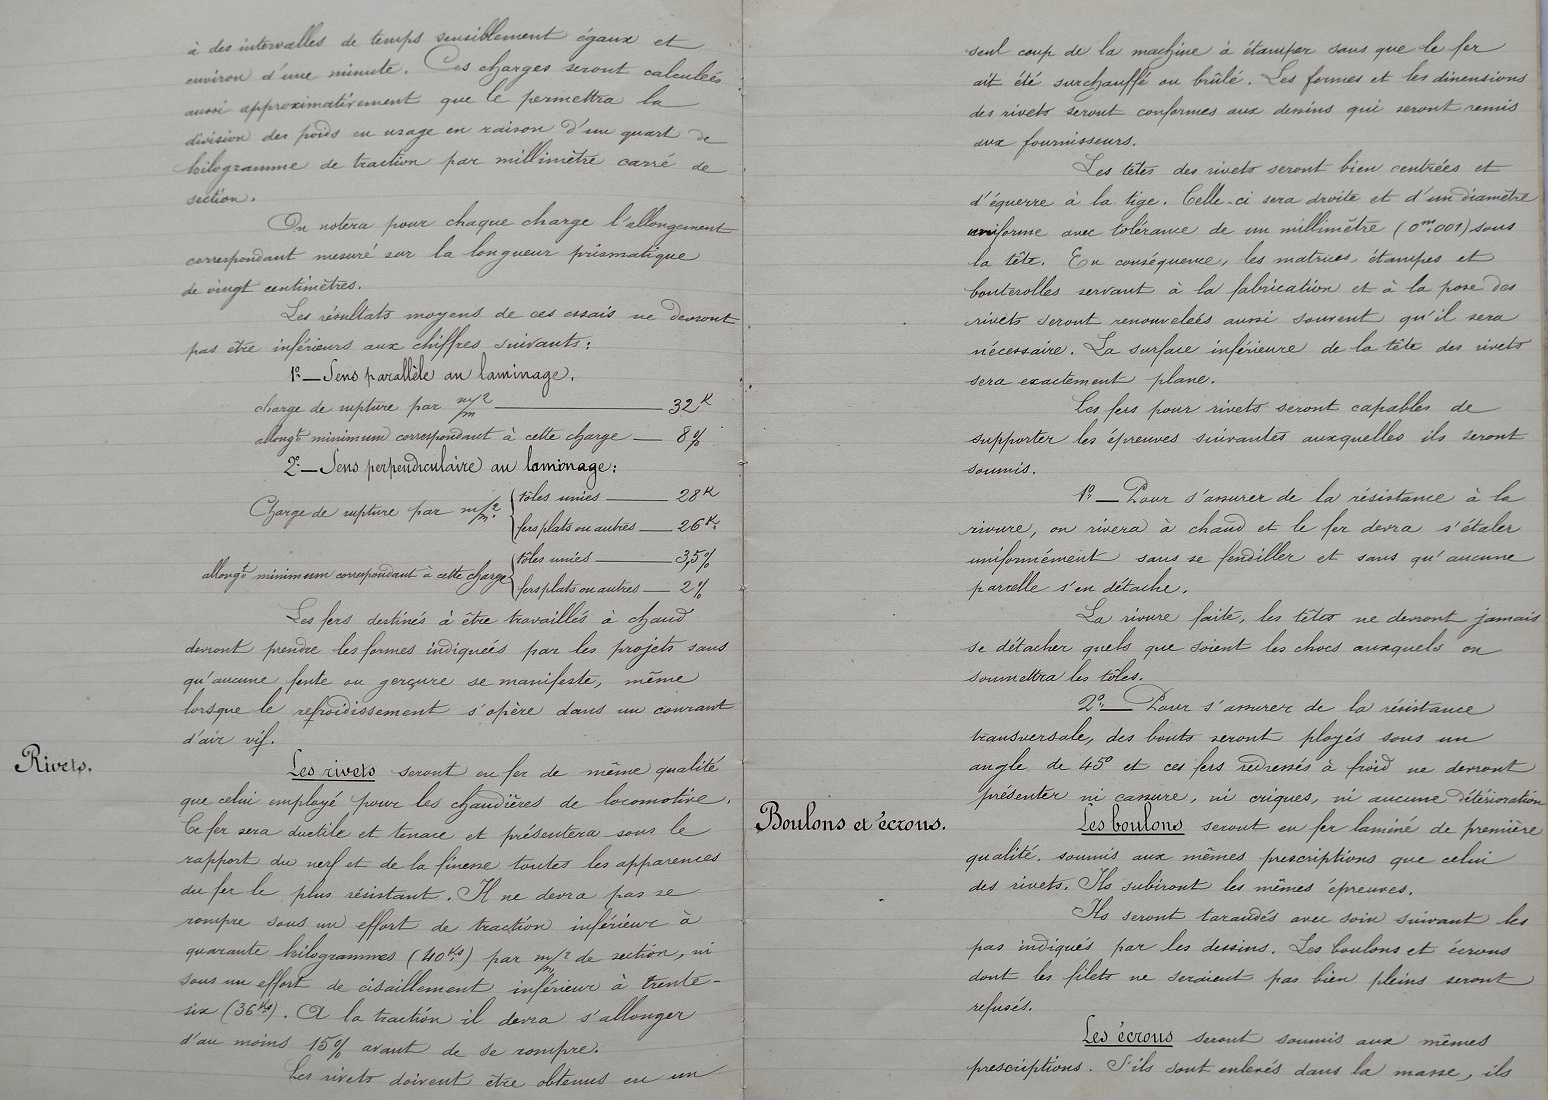 à des intervalles de temps sensiblement égaux et
environ d'une minute. Ces charges seront calculées
aussi approximativement que le permettra la
division des poids en usage en raison d'un quart de
kilogramme de traction par millimètre carré de
section.
On notera pour chaque charge l'allongement
correspondant mesuré sur la longueur prismatique
de vingt centimètres.
Les résultats moyens de ces essais ne devront
pas être inférieurs aux chiffres suivants:
1º_Sens parallèle au laminage.
charge de rupture par m/m 2 — 32 K
allongt minimum correspondant à cette charge — 8 %
2º_Sens perpendiculaire au laminage:
Charge de rupture par m/m 2 { tôles unies — 28 K
fers plats ou autres — 26 K.
allongt minimum correspondant à cette charge { tôles unies — 3,5 %
fers plats ou autres — 2 %
Les fers destinés à être travaillés à chaud
devront prendre les formes indiquées par les projets sans
qu'aucune fente ou gerçure se manifeste, même
lorsque le refroidissement s'opère dans un courant
d'air vif.
Rivets.
Les rivets seront en fer de même qualité
que celui employé pour les chaudières de locomotive.
Ce fer sera ductile et tenace et présentera sous le
rapport du nerf et de la finesse toutes les apparences
du fer le plus résistant. Il ne devra pas se
rompre sous un effort de traction inférieur à
quarante kilogrammes (40 Ks) par m/m 2 de section, ni
sous un effort de cisaillement inférieur à trente-
six (36 Ks). A la traction il devra s'allonger
d'au moins 15 % avant de se rompre.
Les rivets doivent être obtenus en un
seul coup de la machine à étamper sans que le fer
ait été surchauffé ou brûlé. Les formes et les dimensions
des rivets seront conformes aux dessins qui seront remis
aux fournisseurs.
Les têtes des rivets seront bien centrées et
d'équerre à la tige. Celle-ci sera droite et d'un diamètre
uniforme avec tolérance de un millimètre (0m,001) sous
la tête. En conséquence, les matrices, étampes et
bouterolles servant à la fabrication et à la pose des
rivets seront renouvelées aussi souvent qu'il sera
nécessaire. La surface inférieure de la tête des rivets
sera exactement plane.
Les fers pour rivets seront capables de
supporter les épreuves suivantes auxquelles ils seront
soumis.
1º _ Pour s'assurer de la résistance à la
rivure, on rivera à chaud et le fer devra s'étaler
uniformément sans se fendiller et sans qu'aucune
parcelle s'en détache.
La rivure faite, les têtes ne devront jamais
se détacher quels que soient les chocs auxquels on
soumettra les tôles.
2º_ Pour s'assurer de la résistance
transversale, des bouts seront ployés sous un
angle de 45º et ces fers redressés à froid ne devront
présenter ni cassure, ni criques, ni aucune détérioration
Boulons et écrous.
Les boulons seront en fer laminé de première
qualité, soumis aux mêmes prescriptions que celui
des rivets. Ils subiront les mêmes épreuves.
Ils seront taraudés avec soin suivant les
pas indiqués par les dessins. Les boulons et écrous
dont les filets ne seraient pas bien pleins seront
refusés.
Les écrous seront soumis aux mêmes
prescriptions. S'ils sont enlevés dans la masse, ils